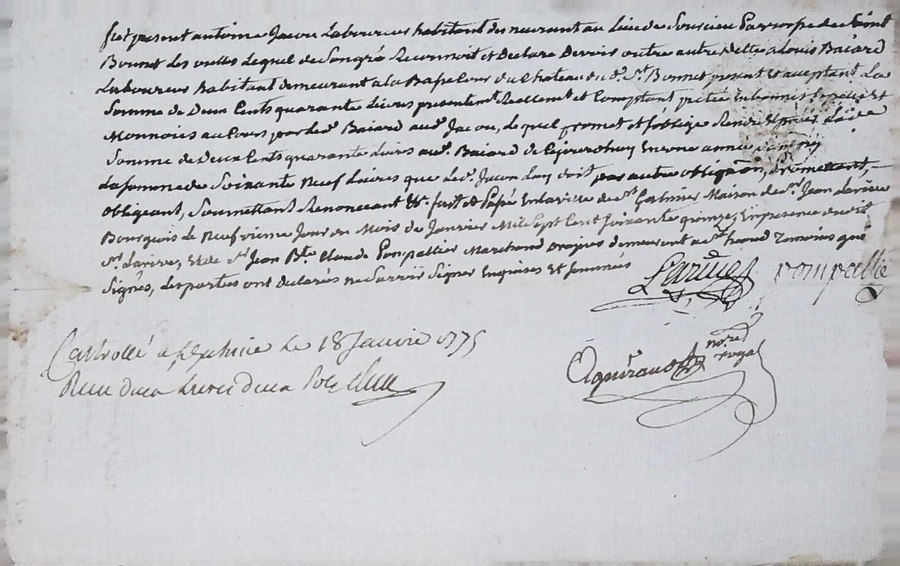 fut present antoine Jacou Laboureur habitant demeurant au Lieu de Souscieu Parroisse de Saint
Bonnet les oulles Lequel de Son gré Reconnoit et Declare Devoir outre autre dette a Louis Baiard
Laboureur habitant demeurant a la Basse Cour du Chateau du d. St Bonnet present et acceptant La
Somme de Deux Cents quarante Livres presentemt Reellement et Comptant en bonnes Especes et
Monnoies au Cours par led. Baiard aud. Jacou, Lequel promet et soblige Rendre et payer La de
Somme de Deux Cents quarante Livres aud. Baiard de Cejourdhuy En une année
La somme de Soixante Neuf Livres que led. Jacou Luy doit par autre obligaôn, promettant,
obligeant, Soumettant Renonceant &c. fait et Passé En la ville de St Galmier Maison de Sr. Jean Larive
Bourgeois le Neufvieme Jour du Mois de Janvier Mil Sept Cent Soixante quinze, En presence dudit
Sr. Larive, et de Sr Jean Bte Claude Pompallier Marchand demeurant a St Temoins que
Signés, Les parties ont Déclarés ne Scavoir Signer Enquises et Sommés
Larive pompallie
Controllé a le 18 Janvie 1775
Reçu deux Livres deux Sols
nore
royal